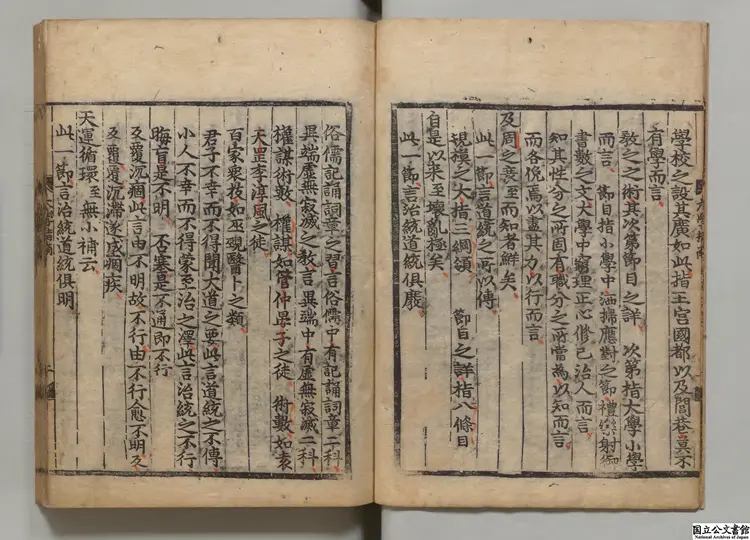 學校之設其廣如此指王宮國都以及閭巷莫不
有學而言
教之之術其次第節目之詳 次第指大學小學
而言 節目指小學中洒掃應對之節禮樂射御
書數之文大學中窮理正心修己治人而言
知其性分之所固有職分之所當為以知而言
而各俛焉以盡其力以行而言
及周之衰至而知者鮮矣
此一節言道統之所以傳
規模之大指三綱領 節目之詳指八條目
自是以来至壞亂極矣
此一節言治統道統俱廢
俗儒記誦詞章之習言俗儒中有記誦詞章二科
異端虛無寂滅之教言異端中有虛無寂滅二科
權謀術數 權謀如管仲晏子之徒 術數如袁
天罡李淳風之徒
百家衆技如巫覡醫卜之類
君子不幸而不得聞大道之要此言道統之不傳
小人不幸而不得蒙至治之澤此言治統之不行
晦盲是不明 否塞是不通即不行
反覆沉痼此言由不明故不行由不行愈不明反
反覆覆沉滯遂成痼疾
天運循環至無小補云
此一節言治統道統俱明
国立公文書館
National Archives of Japan